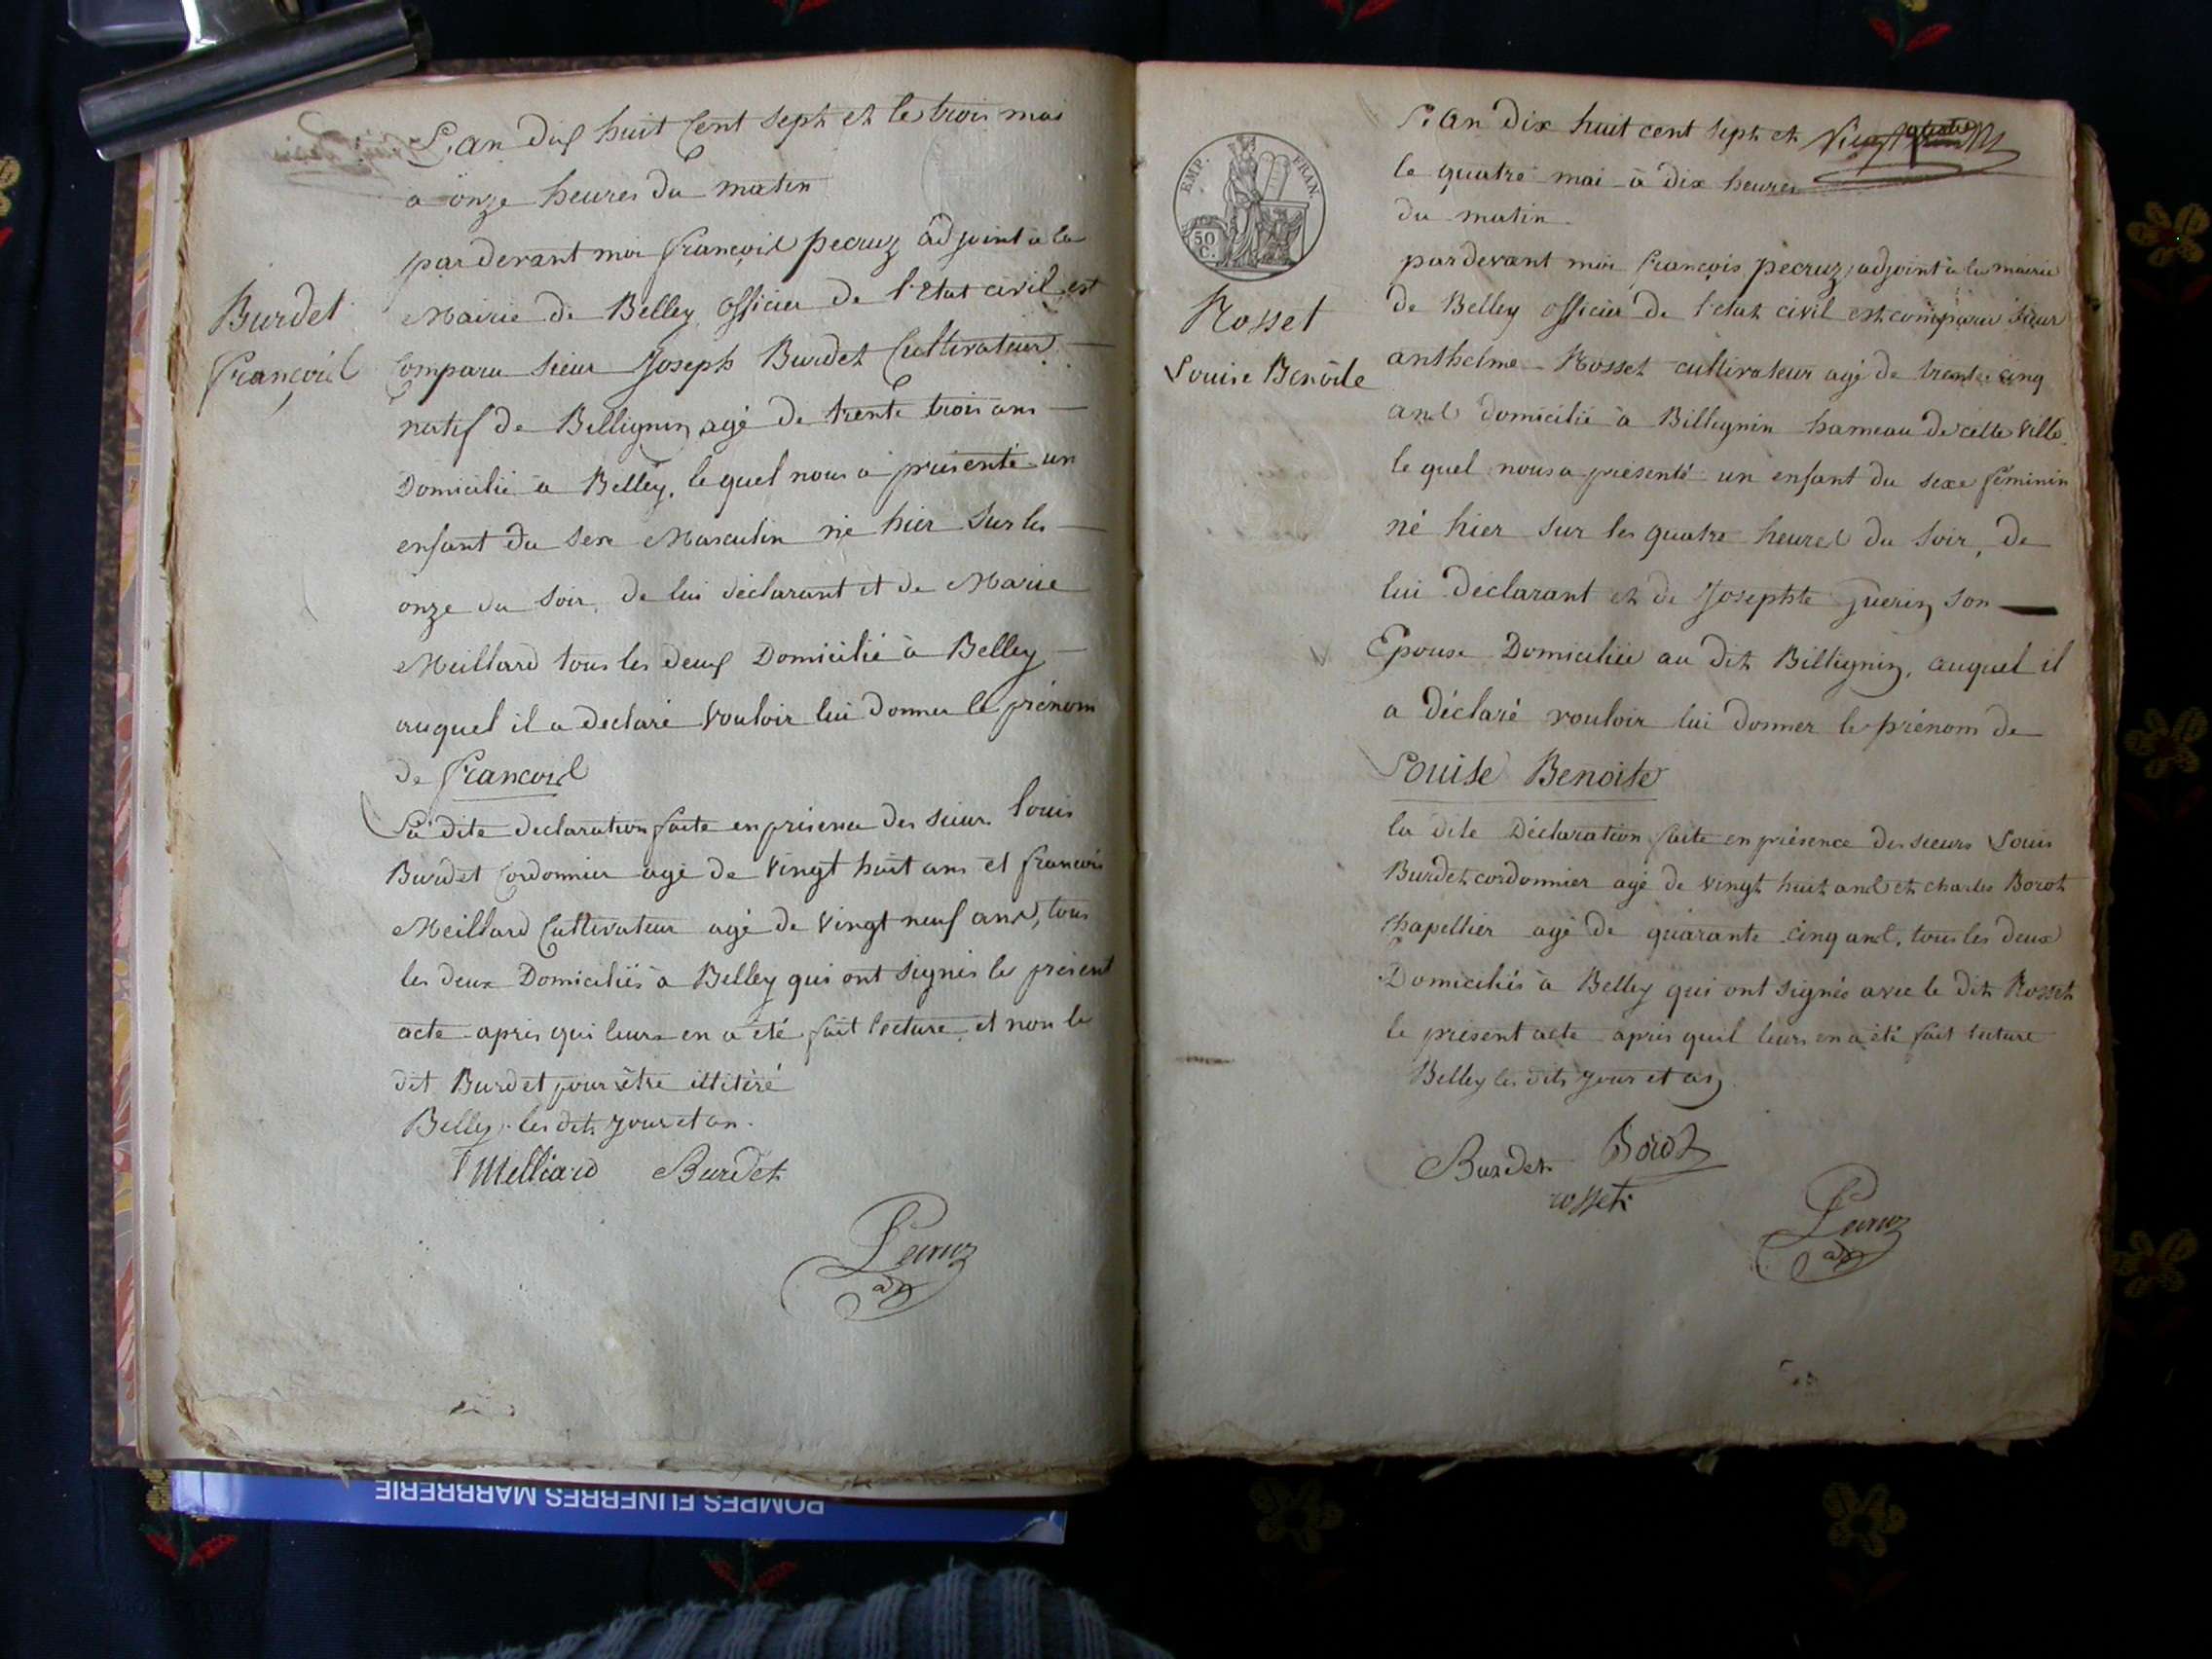 L'an dix huit Cent sept et le trois mai
a onze heures du matin
par devant moi françois pecruz adjoint à la
Burdet
françois
Mairie de Belley officier de l'Etat civil est
Comparu sieur Joseph Burdet Cultivateur
natif de Billignin agé de trente trois ans
Domicilié à Belley, lequel nous a présenté un
enfant du sexe Masculin né hier sur les
onze du soir, de lui déclarant et de Marie
Meillard tous les deux Domicilié à Belley
auquel il a declaré vouloir lui donner le prénom
de francois
La dite declaration faite en présence des sieurs louis
Burdet Cordonnier agé de vingt huit ans et francois
Meillard Cultivateur agé de vingt neuf ans, tous
les deux Domiciliés à Belley qui ont signés le présent
acte après qui leurs en a été fait lecture, et non le
dit Burdet pour être illitéré
Belley les dits jour et an.
Burdet
Pecruz
adj
EMP. FRAN.
50 C.
Rosset
Louise Benoite
L'an dix huit cent sept et
le quatre mai à dix heures
du matin
par devant moi françois pecruz, adjoint à la mairie
de Belley officier de l'etat civil est comparu sieur
anthelme Rosset cultivateur agé de trente cinq
ans domicilié à Billignin hameau de cette ville
le quel nous a présenté un enfant du sexe féminin
né hier sur les quatre heures du soir, de
lui déclarant et de Josephte Guerin son
Epouse Domiciliée au dit Billignin, auquel il
a déclaré vouloir lui donner le prénom de
Louise Benoite
la dite Déclaration faite en présence des sieurs Louis
Burdet cordonnier agé de vingt huit ans et charles Borot
chapellier agé de quarante cinq ans, tous les deux
Domiciliés à Belley qui ont signés avec le dit Rosset
le présent acte après quil leurs en a été fait lecture
Belley les dits jour et an
Burdet Borot
rosset
Pecruz
adj
POMPES FUNEBRES MARBRERIE